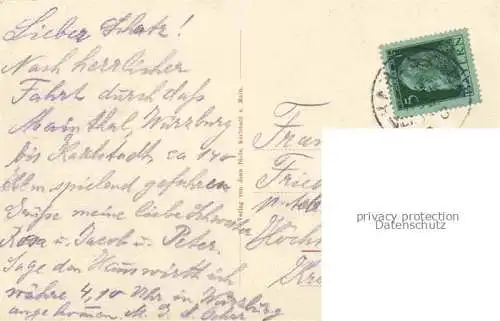 Lieber Schatz!
Nach herrlicher
Fahrt durch daß
Mainthal, Würzburg
bis Karlstadt, ca 140
Klm spielend gefahren
Grüße meine liebe Schwester
Rosa u. Jacob u. Peter.
Sage den Hauswirth ich
währe 4,10 Uhr in Würzburg
angekommen.
Karlstadt a. Main.
Frau
Fried
Höch
Kre
5
BAYERN
privacy protection
Datenschutz